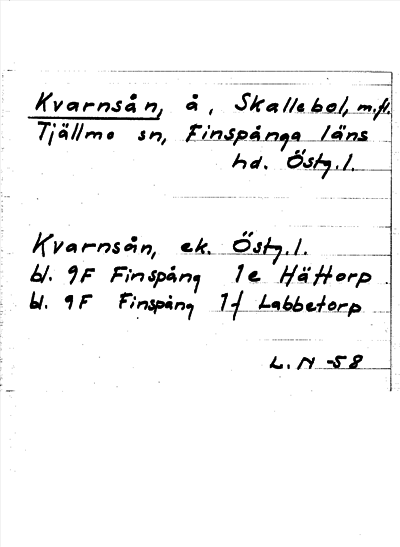 Kvarnsån, å, Skallebol, m.fl.
Tjällmo sn, Finspånga läns
hd. Östg.l.
Kvarnsån, ek. Östg.l.
bl. 9F Finspång 1e Hättorp
bl. 9F Finspång 1f Labbetorp
L. N -58